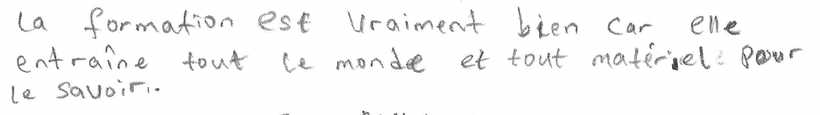 la formation est vraiment bien car elle
entraîne tout le monde et tout matériel pour
le savoir.